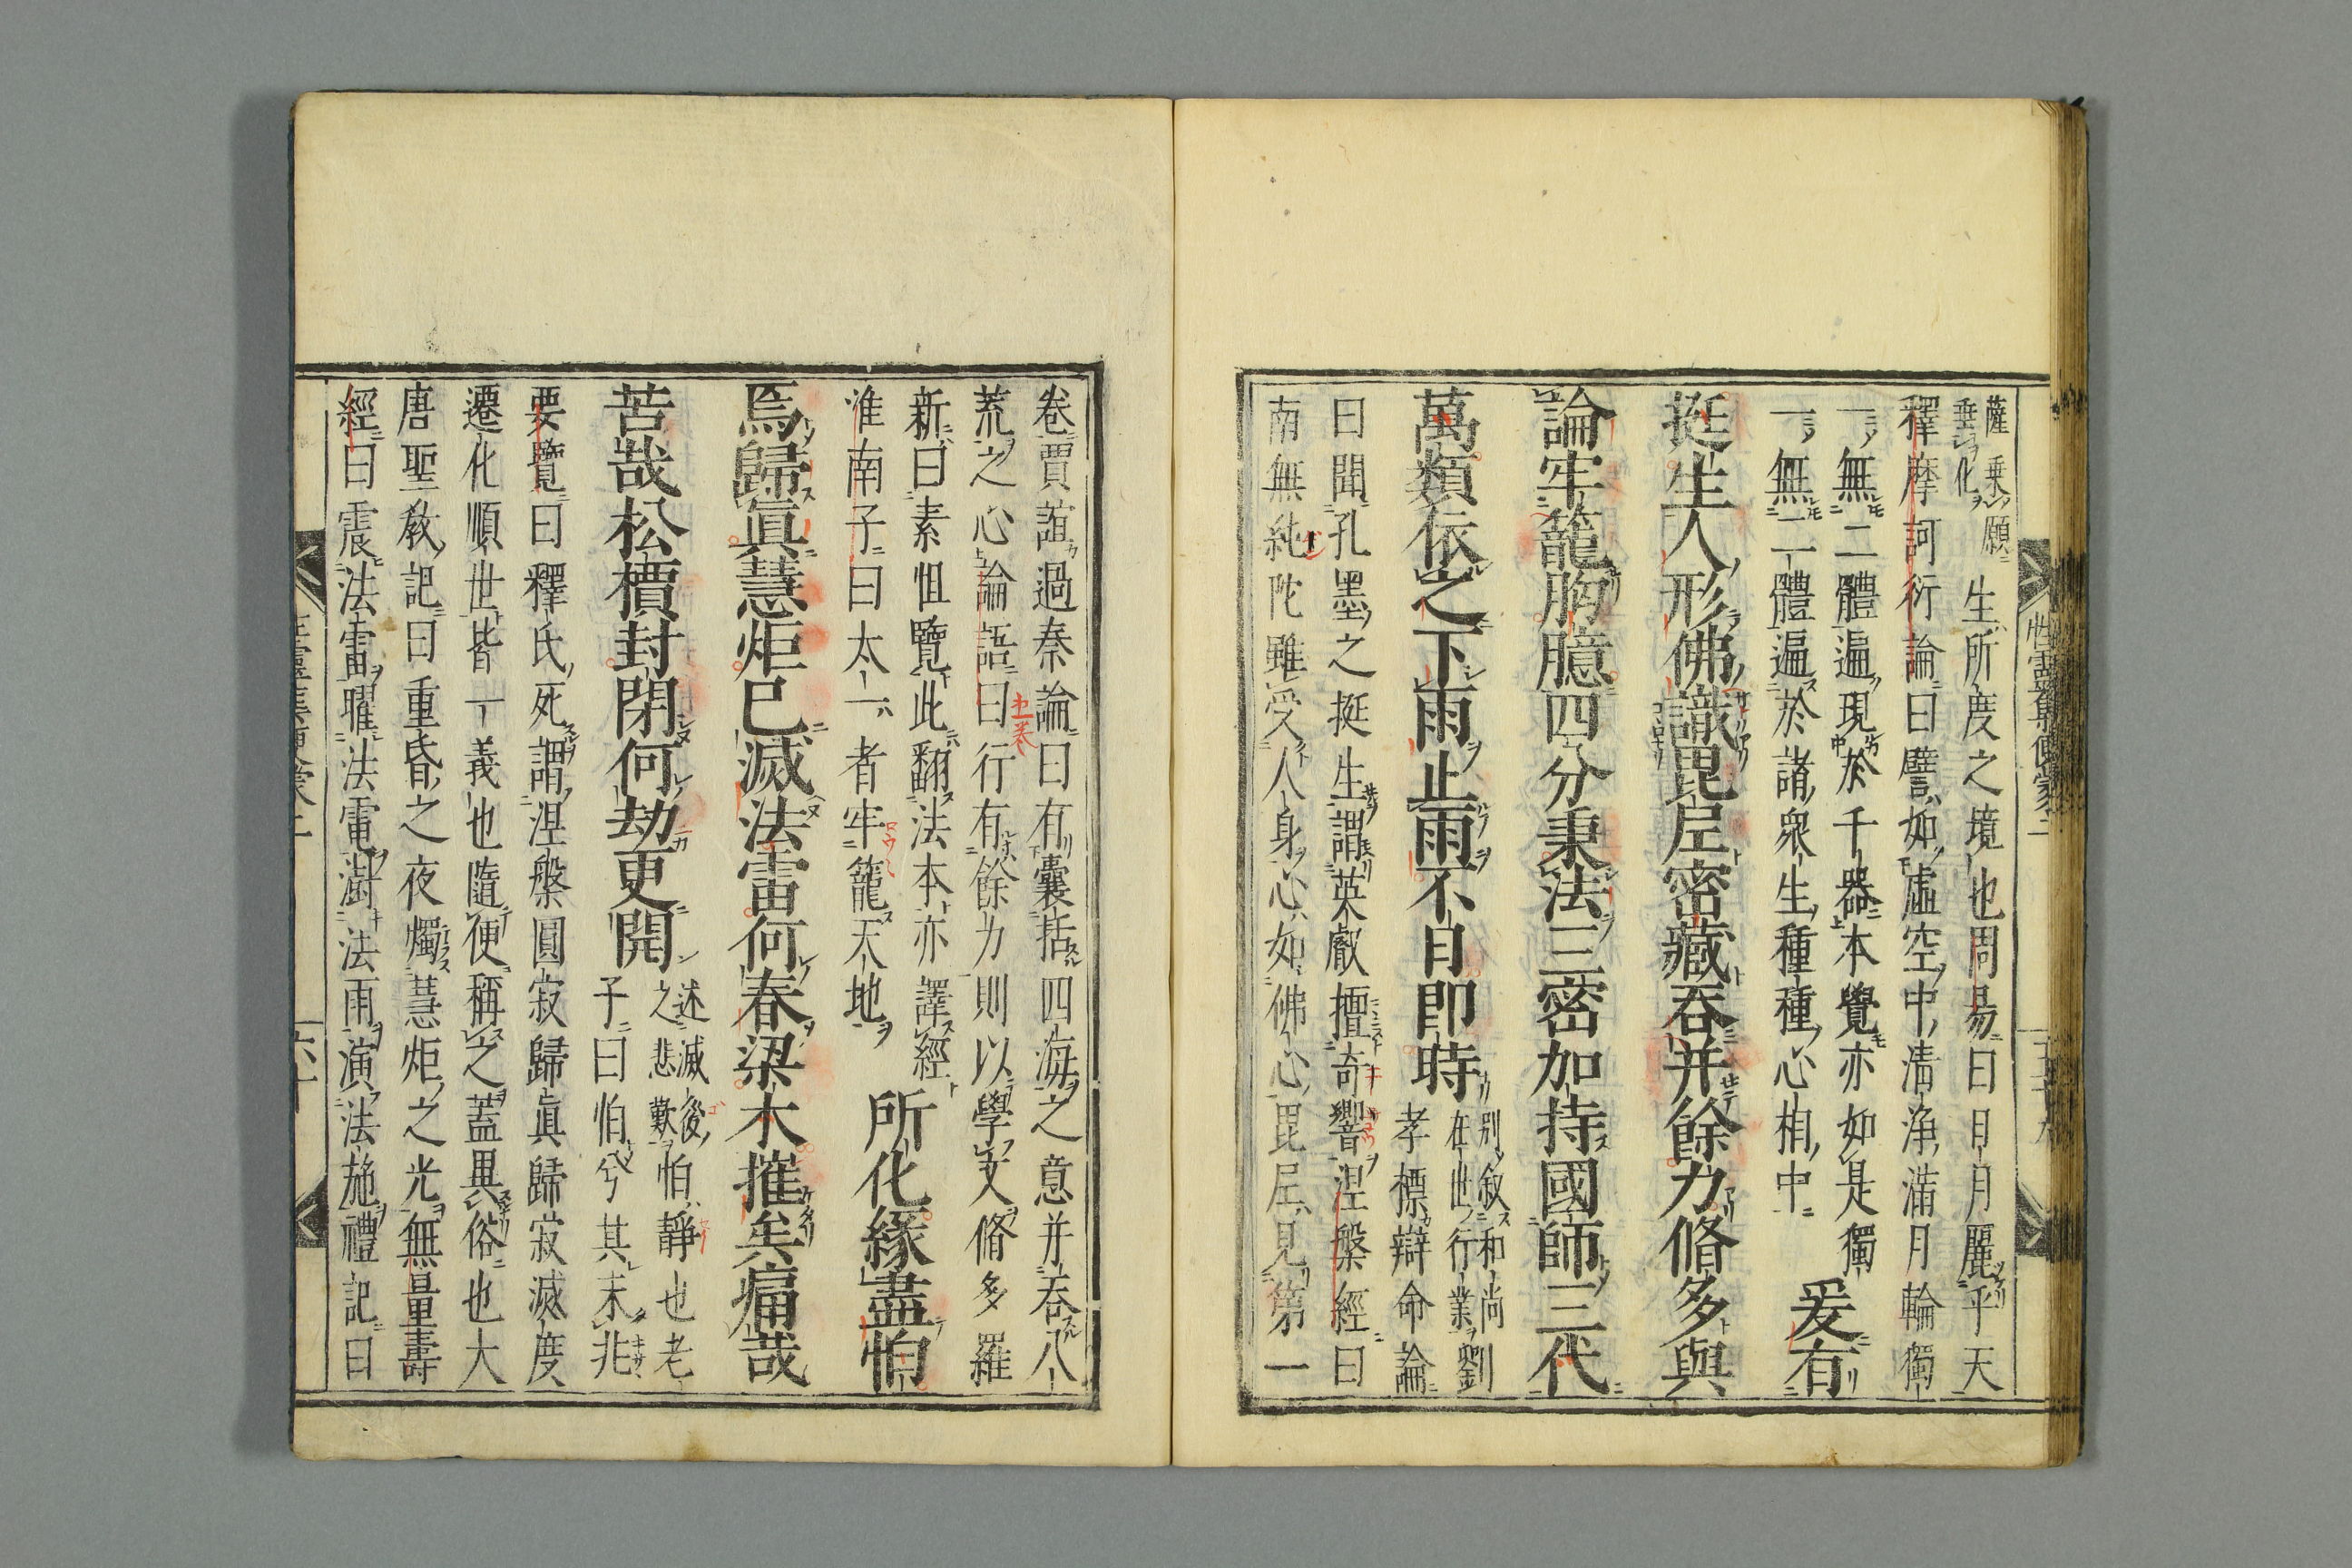 薩乘願
垂化
生所度之境也周易曰日月麗乎天
釋摩訶衍論曰譬如虛空中清淨滿月輪獨
一無二體遍現於千器本覺亦如是獨
一無二一體遍於諸衆生種種心相中
爰有
挺生人形佛識毘尼密藏吞并餘力脩多與
論牢籠胸臆四分秉法三密加持國師三代
萬類依之下雨止雨不日即時
別敘和尚
在世行業
劉
孝標辯命論
曰聞孔墨之挺生謂英叡擅奇響涅槃經曰
南無純陀雖受人身心如佛心毘尼見第一
卷賈誼過秦論曰有囊括四海之意并吞八
荒之心論語曰行有餘力則以學文脩多羅
新曰素怛覽此翻法本亦譯經
淮南子曰太一者牢籠天地
所化緣盡怕
焉歸眞慧炬已滅法雷何春梁木摧矣痛哉
苦哉松檟封閉何劫更開
述滅後
之悲歎
怕靜也老
子曰怕兮其未兆
要覽曰釋氏死謂涅槃圓寂歸眞歸寂滅度
遷化順世皆一義也隨便稱之蓋異俗也大
唐聖教記曰重昏之夜燭慧炬之光無量壽
經曰震法雷曜法電澍法雨演法施禮記曰